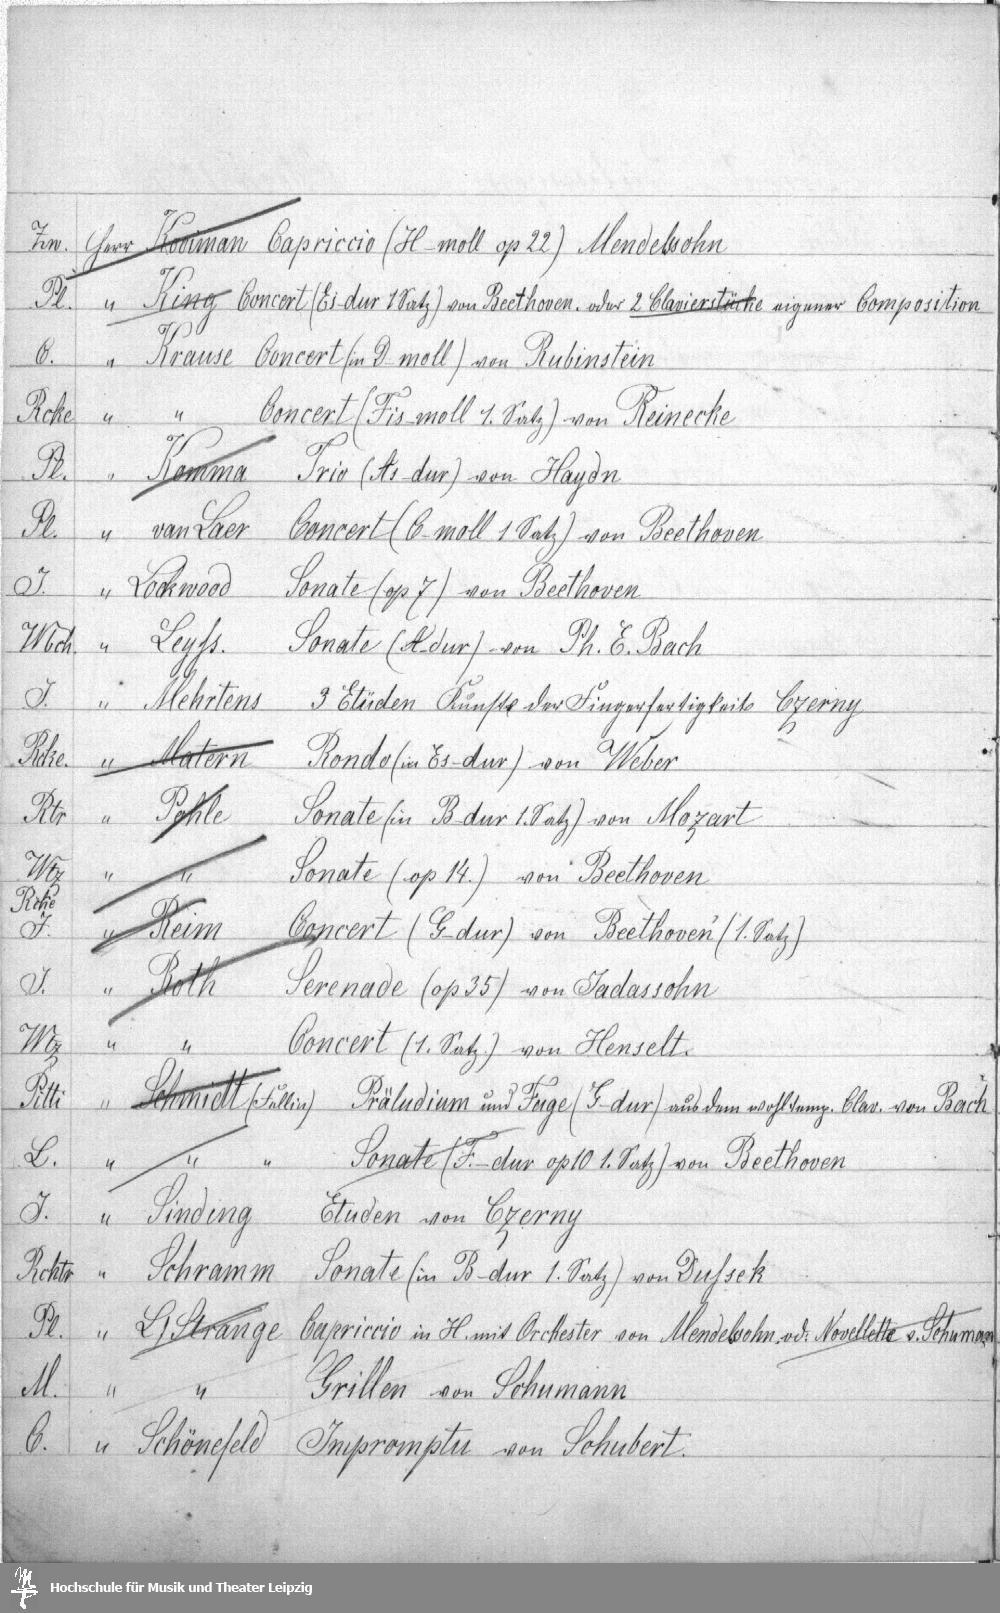 Zw. Herr Kooiman Capriccio (H-moll op 22) Mendelssohn
Pl. " King Concert (Es-dur 1 Satz) von Beethoven. oder 2 Clavierstücke eigener Composition
C. " Krause Concert (in D moll) von Rubinstein
Rcke " " Concert (Fis-moll 1. Satz) von Reinecke
Pl. " Komma Trio (As-dur) von Haydn
Pl. " van Laer Concert (C-moll 1 Satz) von Beethoven
J. " Lockwood Sonate (op 7) von Beethoven
Wbch. " Leyhs. Sonate (A-dur) von Ph. E. Bach
J. " Mehrtens 3 Etüden Kunst der Fingerfertigkeit Czerny
Rcke. " Matern Rondo (in Es-dur) von Weber
Rtr " Pohle Sonate (in B-dur 1. Satz) von Mozart
Wtz " " Sonate (op 14.) von Beethoven
Rcke
J. " Reim Concert (G-dur) von Beethoven (1. Satz)
J. " Roth Serenade (op 35) von Jadassohn
Wtz " " Concert (1. Satz.) von Henselt.
Pitti " Schmidt Präludium und Fuge (G-dur) aus dem wohltemp. Clav. von Bach
L. " " " Sonate (F-dur op 10 1. Satz) von Beethoven
J. " Sinding Etuden von Czerny
Rchtr " Schramm Sonate (in B-dur 1. Satz) von Dussek
Pl. " L'Strange Capriccio in H. mit Orchester von Mendelssohn od. Novellette v. Schumann
M. " " Grillen von Schumann
C. " Schönefeld Impromptu von Schubert.
Hochschule für Musik und Theater Leipzig